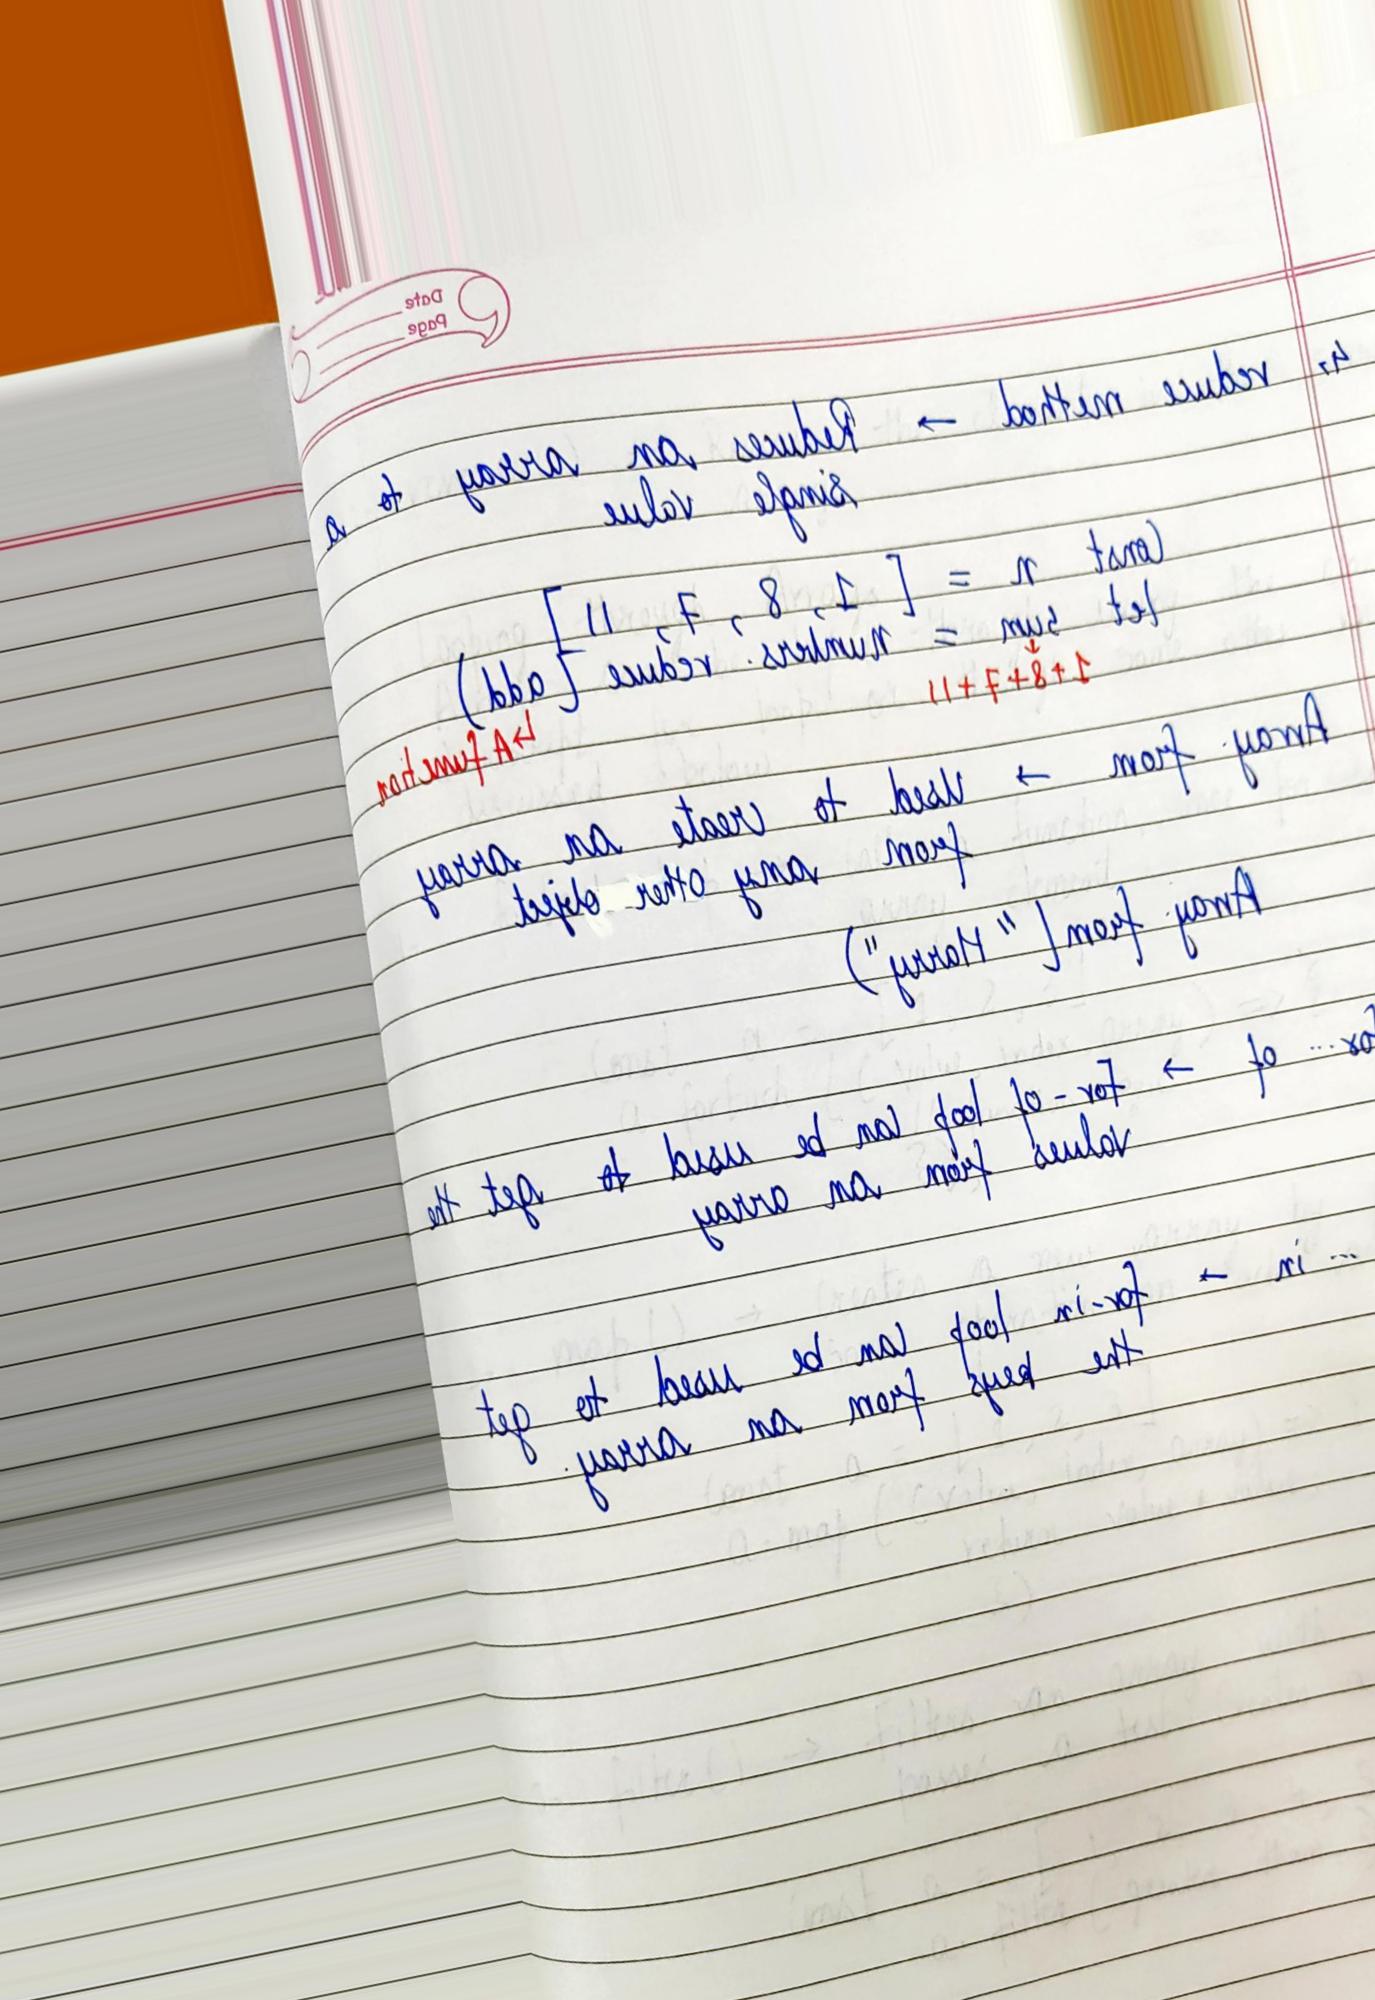 Date
Page
4. reduce method → Reduces an array to a
single value
Const n = [ 1, 8, 7, 11 ]
let sum = numbers. reduce (add)
1+8+7+11
↳ A function
Array. from → Used to create an array
from any other object
Array. from( "Harry")
for... of → for-of loop can be used to get the
values from an array
... in → for-in loop can be used to get
the keys from an array.